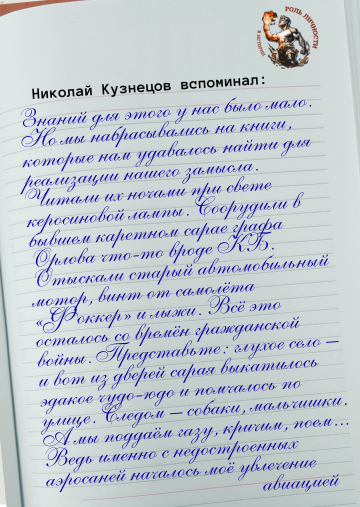 РОЛЬ ЛИЧНОСТИ
Николай Кузнецов вспоминал:
Знаний для этого у нас было мало.
Но мы набрасывались на книги,
которые нам удавалось найти для
реализации нашего замысла.
Читали их ночами при свете
керосиновой лампы. Соорудили в
бывшем каретном сарае графа
Орлова что-то вроде КБ.
Отыскали старый автомобильный
мотор, винт от самолёта
«Фоккер» и лыжи. Всё это
осталось со времён гражданской
войны. Представьте: глухое село –
и вот из дверей сарая выкатилось
эдакое чудо-юдо и помчалось по
улице. Следом – собаки, мальчишки.
А мы поддаём газу, кричим, поем...
Ведь именно с недостроенных
аэросаней началось моё увлечение
авиацией